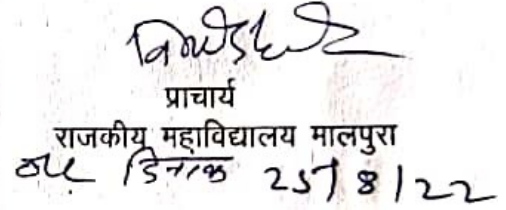 प्राचार्य
राजकीय महाविद्यालय मालपुरा
दिनांक 25/8/22